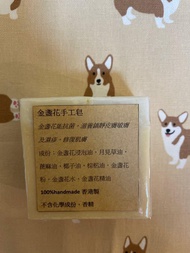 金盞花手工皂
金盞花能抗菌，滋養鎮靜皮膚敏感
及濕疹，修復肌膚
成份：金盞花浸泡油、月見草油、
蓖麻油、椰子油、棕櫚油、金盞花
粉、金盞花水、金盞花精油
100%handmade 香港製
不含化學成份、香精